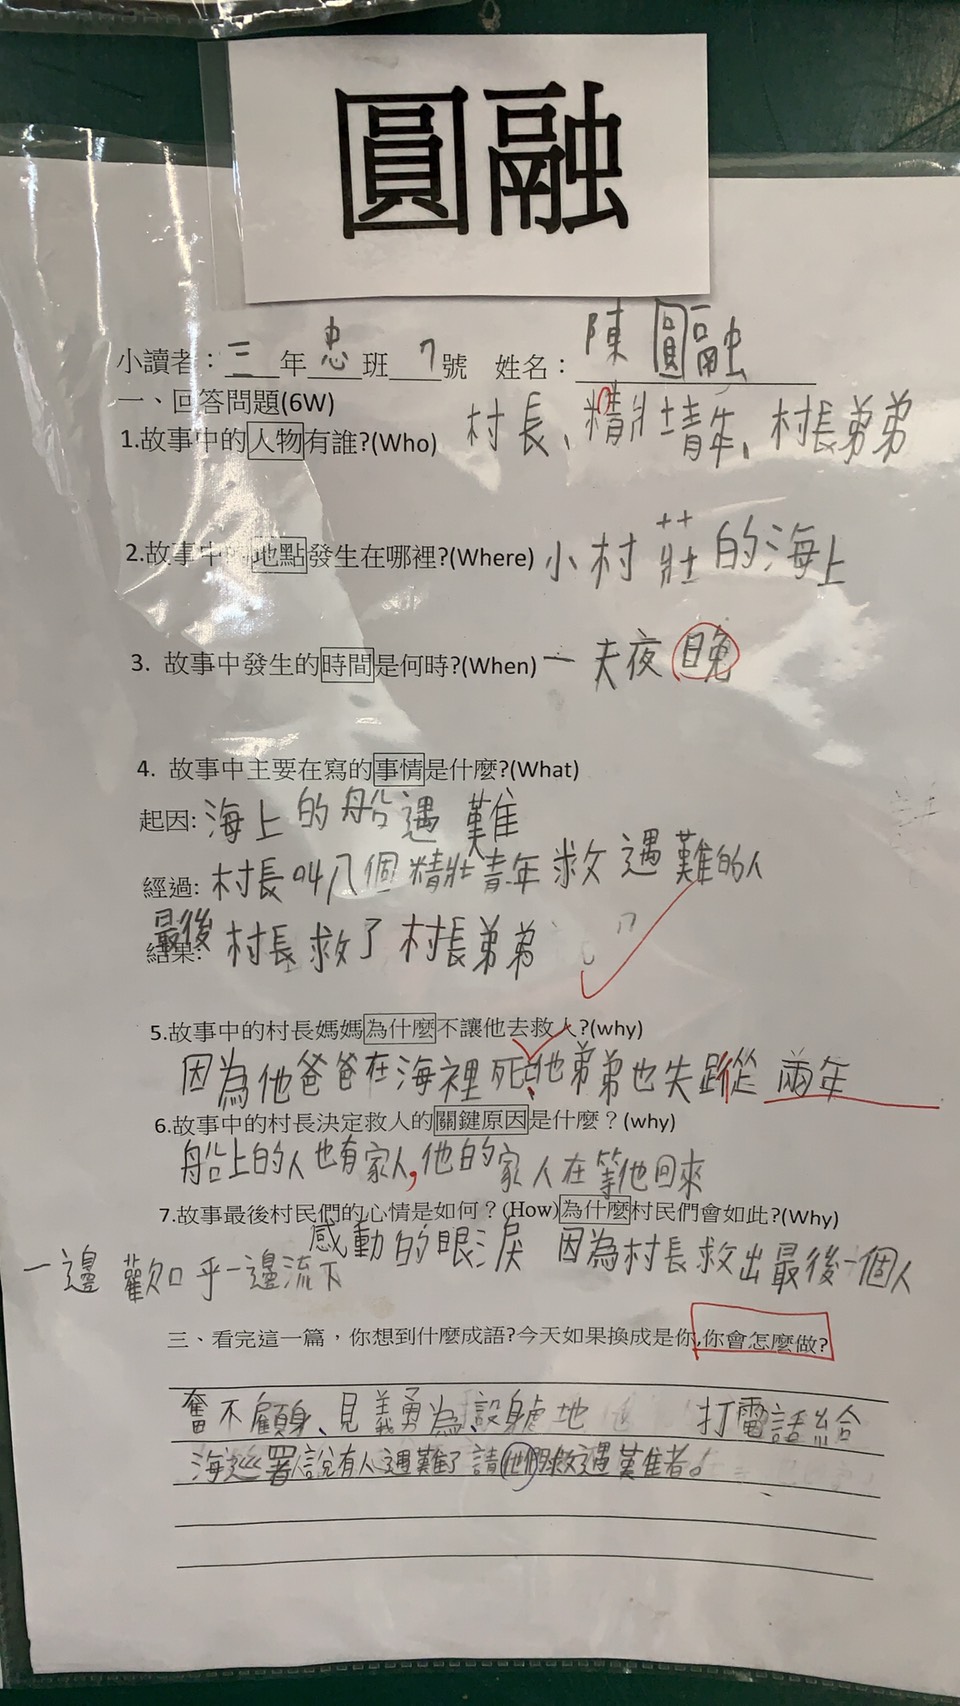 圓融
小讀者：三年忠班7號 姓名：陳圓融
一、回答問題(6W)
1.故事中的人物有誰?(Who) 村長、精壯青年、村長弟弟
2.故事中 地點發生在哪裡?(Where) 小村莊的海上
3. 故事中發生的時間是何時?(When) 一天夜晚
4. 故事中主要在寫的事情是什麼?(What)
起因: 海上的船遇難
經過: 村長叫八個精壯青年救遇難的人
結果: 最後村長救了村長弟弟
5.故事中的村長媽媽為什麼不讓他去救人?(why)
因為他爸爸在海裡死,他弟弟也失蹤從兩年
6.故事中的村長決定救人的關鍵原因是什麼？(why)
船上的人也有家人,他的家人在等他回來
7.故事最後村民們的心情是如何？(How)為什麼村民們會如此?(Why)
一邊歡呼一邊流下感動的眼淚 因為村長救出最後一個人
三、看完這一篇，你想到什麼成語?今天如果換成是你,你會怎麼做?
奮不顧身、見義勇為、設身處地 打電話給
海巡署說有人遇難了請他們救遇難者。